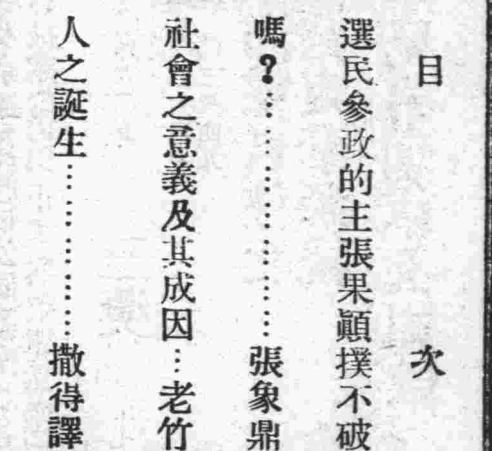 目次
選民參政的主張果顚撲不破
嗎？……………………張象鼎
社會之意義及其成因…老竹
人之誕生………………撒得譯